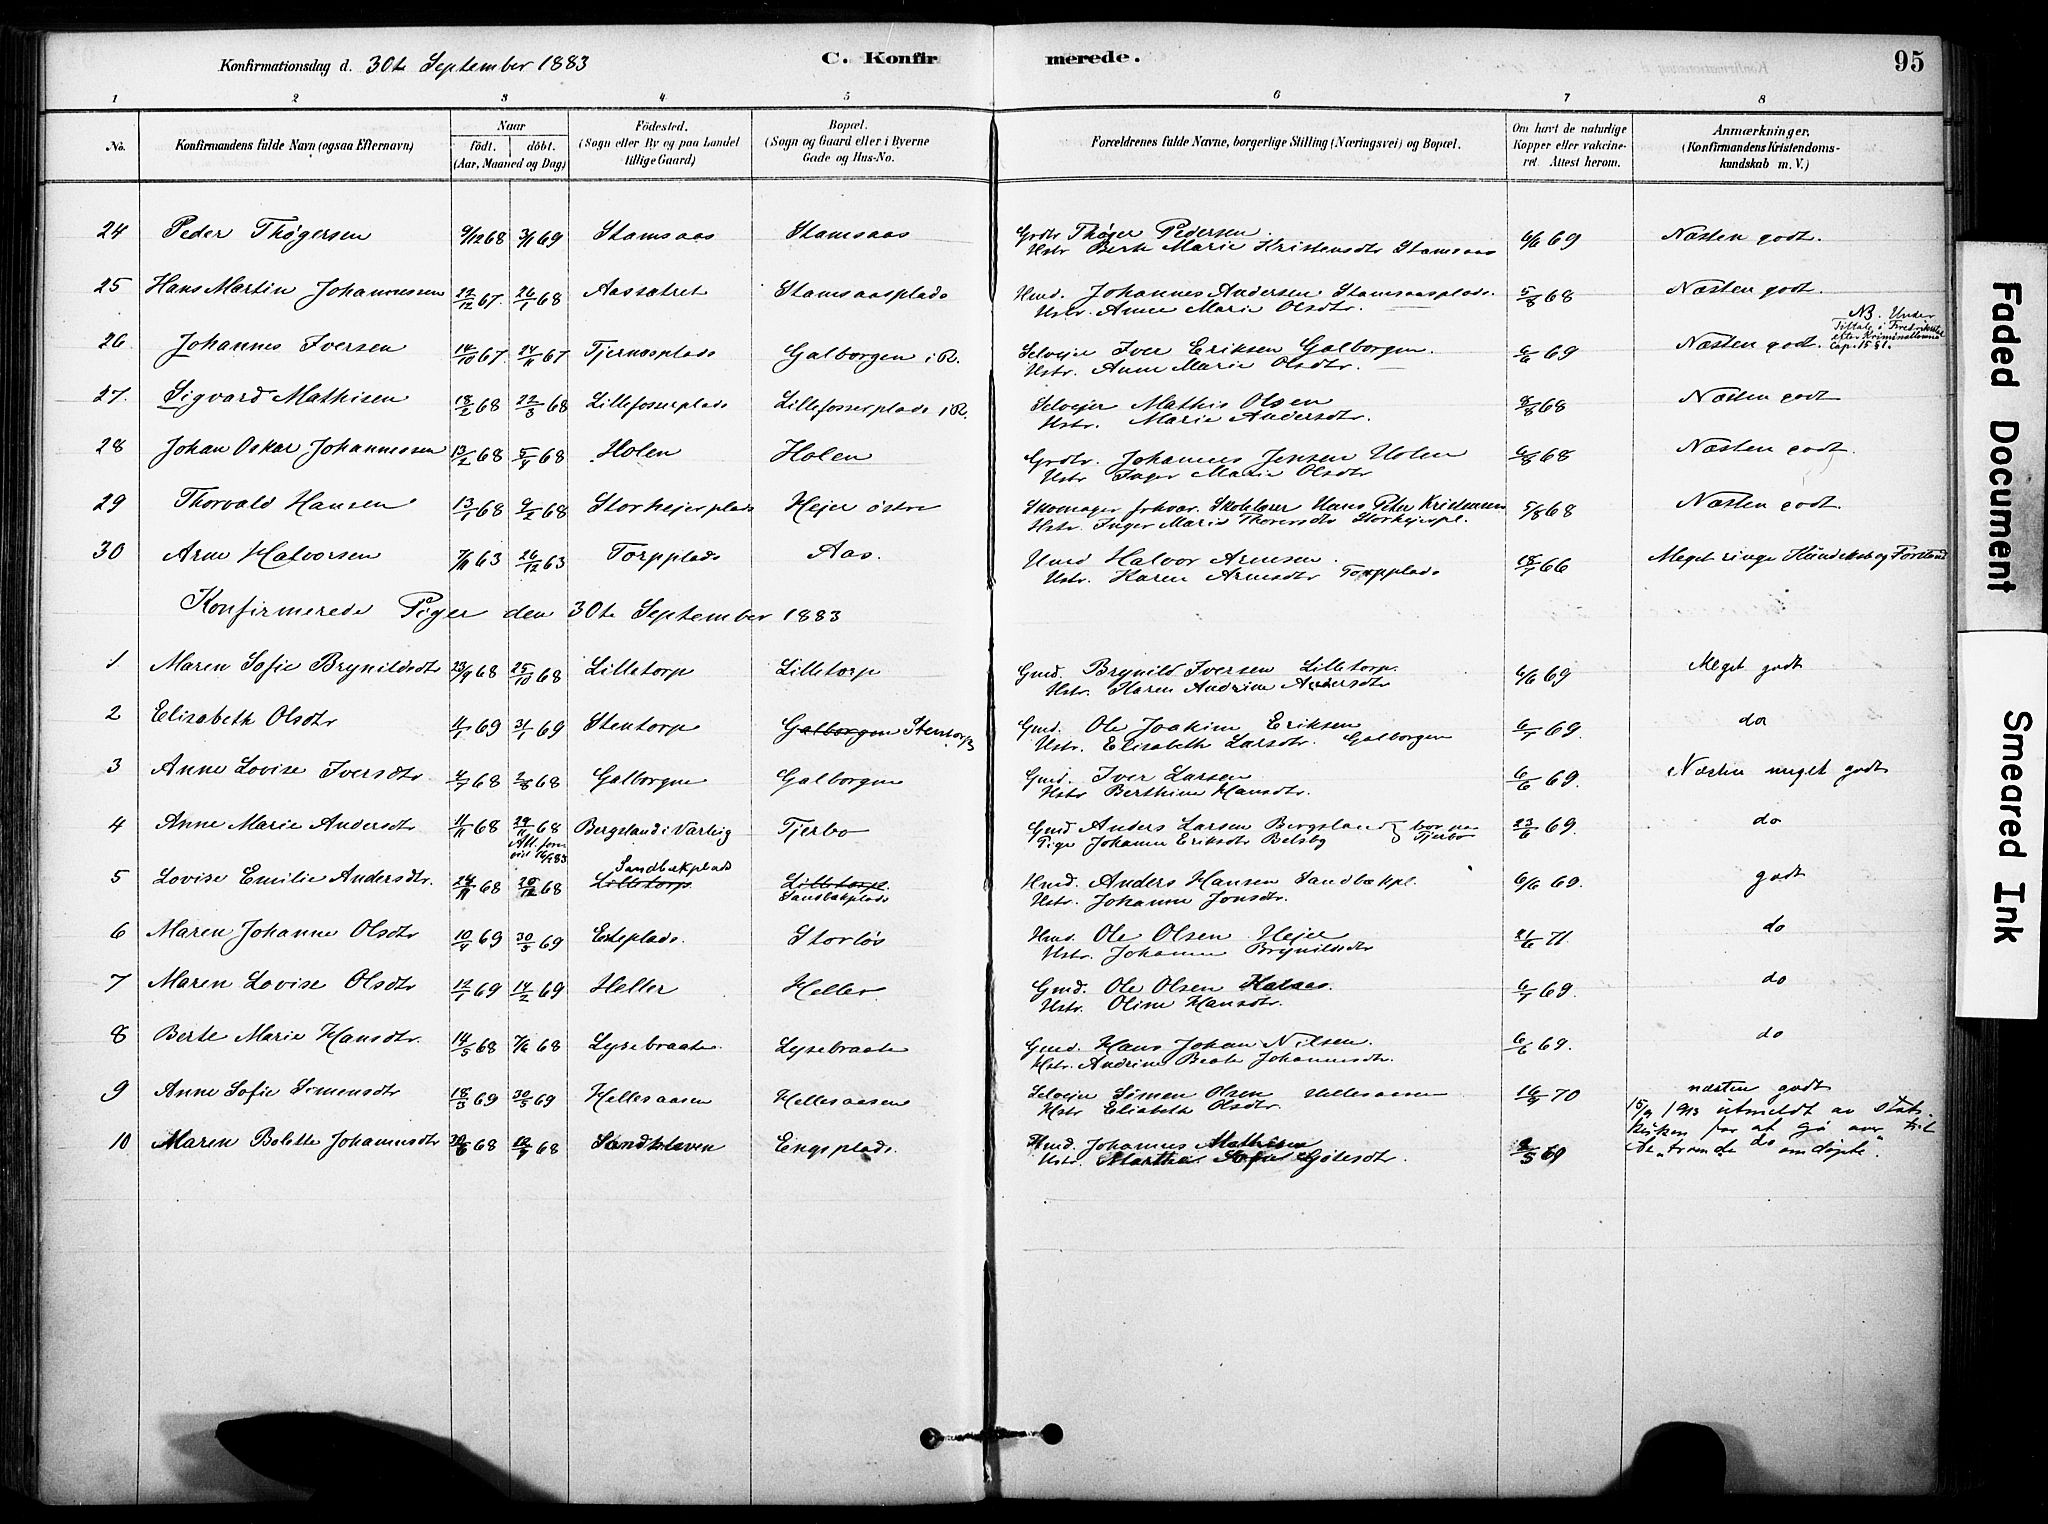 Konfirmationsdag d. 30te September 1883 C. Konfirmerede. 95
1 2 3 4 5 6 7 8
No. Konfirmandens fulde Navn (ogsaa Efternavn) Naar födt. döbt. (Aar, Maaned og Dag) Födested. (Sogn eller By og paa Landet tillige Gaard) Bopæl. (Sogn og Gaard eller i Byerne Gade og Hus-No. Forældrenes fulde Navne, borgerlige Stilling (Næringsvei) og Bopæl. Om havt de naturlige Kopper eller vakcineret. Attest herom. Anmærkninger. (Konfirmandens Kristendomskundskab m. V.)
24 Peder Thøgersen 9/12 68 3/1 69 Stamsaas Stamsaas Grdbr Thøger Pedersen. Hstr Berte Marie Kristensdtr Stamsaas 6/6 69 Næsten godt.
25 Hans Martin Johannessen 22/12 67. 26/1 68 Aassætret Stamsaasplads Hmd. Johannes Andersen Stamsaasplads. Hstr. Anne Marie Olsdtr. 5/8 68 Næsten godt.
26 Johannes Iversen 14/10 67 24/11 67 Tjernæsplads Galborgen i R. Selvejer Iver Eriksen Galborgen. Hstr. Anne Marie Olsdtr. 6/6 69 Næsten godt. NB. Under Tiltale i Fredrikstad efter Kriminalloven Cap. 15 § 1.
27. Sigvard Mathisen 18/2 68 22/3 68 Lillefosserplads Lillefosserplads i R. Selvejer Mathis Olsen Hstr. Marie Andersdtr. 8/8 68 Næsten godt
28 Johan Oskar Johannessen 13/2 68 5/4 68 Holen Holen Grdbr. Johannes Jensen Holen Hstr Inger Marie Olsdtr 6/8 68 Næsten godt.
29 Thorvald Hansen 13/1 68 9/2 68 Storhejerplads Hejer østre Skomager forhvær. Skolelærer Hans Peter Kristensen Hstr. Inger Marie Thoresdtr Storhejerpl. 5/8 68 Næsten godt.
30 Arne Halvorsen 7/11 63 26/12 63 Torpplads Aas. Hmd Halvor Arnesen. Hstr. Karen Arnesdtr Torpplads 18/7 66 Meget ringe Kundskab og Forstand
Konfirmerede Piger den 30te September 1883
1 Maren Sofie Brynildsdtr 23/9 68 25/10 68 Lilletorp Lilletorp Gmd. Brynild Iversen Lilletorp. Hstr. Karen Andrine Andersdtr 6/6 69 Meget godt
2 Elisabeth Olsdtr 4/1 69 31/1 69 Stentorp Galborgen Stentorp Gmd. Ole Joakim Eriksen Hstr. Elisabeth Larsdtr. Galborgen 6/7 69. do
3 Anne Lovise Iversdtr 4/7 68 2/8 68 Galborgen Galborgen Gmd. Iver Larsen Hstr Berthine Hansdtr. 6/6 69. Næsten meget godt
4 Anne Marie Andersdtr 11/11 68 29/11 68 Att. forevist 16/9 83 Bergsland i Varteig Tjerbo Gmd Anders Larsen Bergsland Pige Johanne Eriksdtr Belsby } bor paa Tjerbo 23/6 69. do
5 Lovise Emilie Andersdtr. 24/11 68 20/12 68 Sandbækplads Lilletorp Lilletorp. Sandbækplads Hmd. Anders Hansen Sandbækpl. Hstr. Johanne Jonsdtr. 6/6 69. godt
6 Maren Johanne Olsdtr 10/4 69 30/5 69 Esteplads. Storløs Hmd. Ole Olsen Hejer Hstr. Johanne Brynildsdtr 21/6 71. do
7 Maren Lovise Olsdtr 12/1 69 14/2 69 Heller Heller Gmd. Ole Olsen Hstr. Oline Hansdtr. 6/7 69. do
8 Berte Marie Hansdtr. 14/5 68 7/6 68 Lysebraate. Lysebraate Gmd. Hans Johan Nilsen. Hstr. Andrine Beate Johannesdtr. 6/6 69. do
9 Anne Sofie Simensdtr 18/3 69 30/5 69 Hellesaasen Hellesaasen Selvejer Simen Olsen Hellesaasen Hstr Elisabeth Olsdtr. 16/9 70 næsten godt
10 Maren Bolette Johannesdtr 20/6 68 19/7 68 Sandkleven Engsplads. Hmd. Johannes Mathisen Hstr. Martha Sofie 2/5 69 do
15/9 1913 utmeldt av statskirken for at gå over til de „troende omdøpte".
Faded Document
Smeared Ink